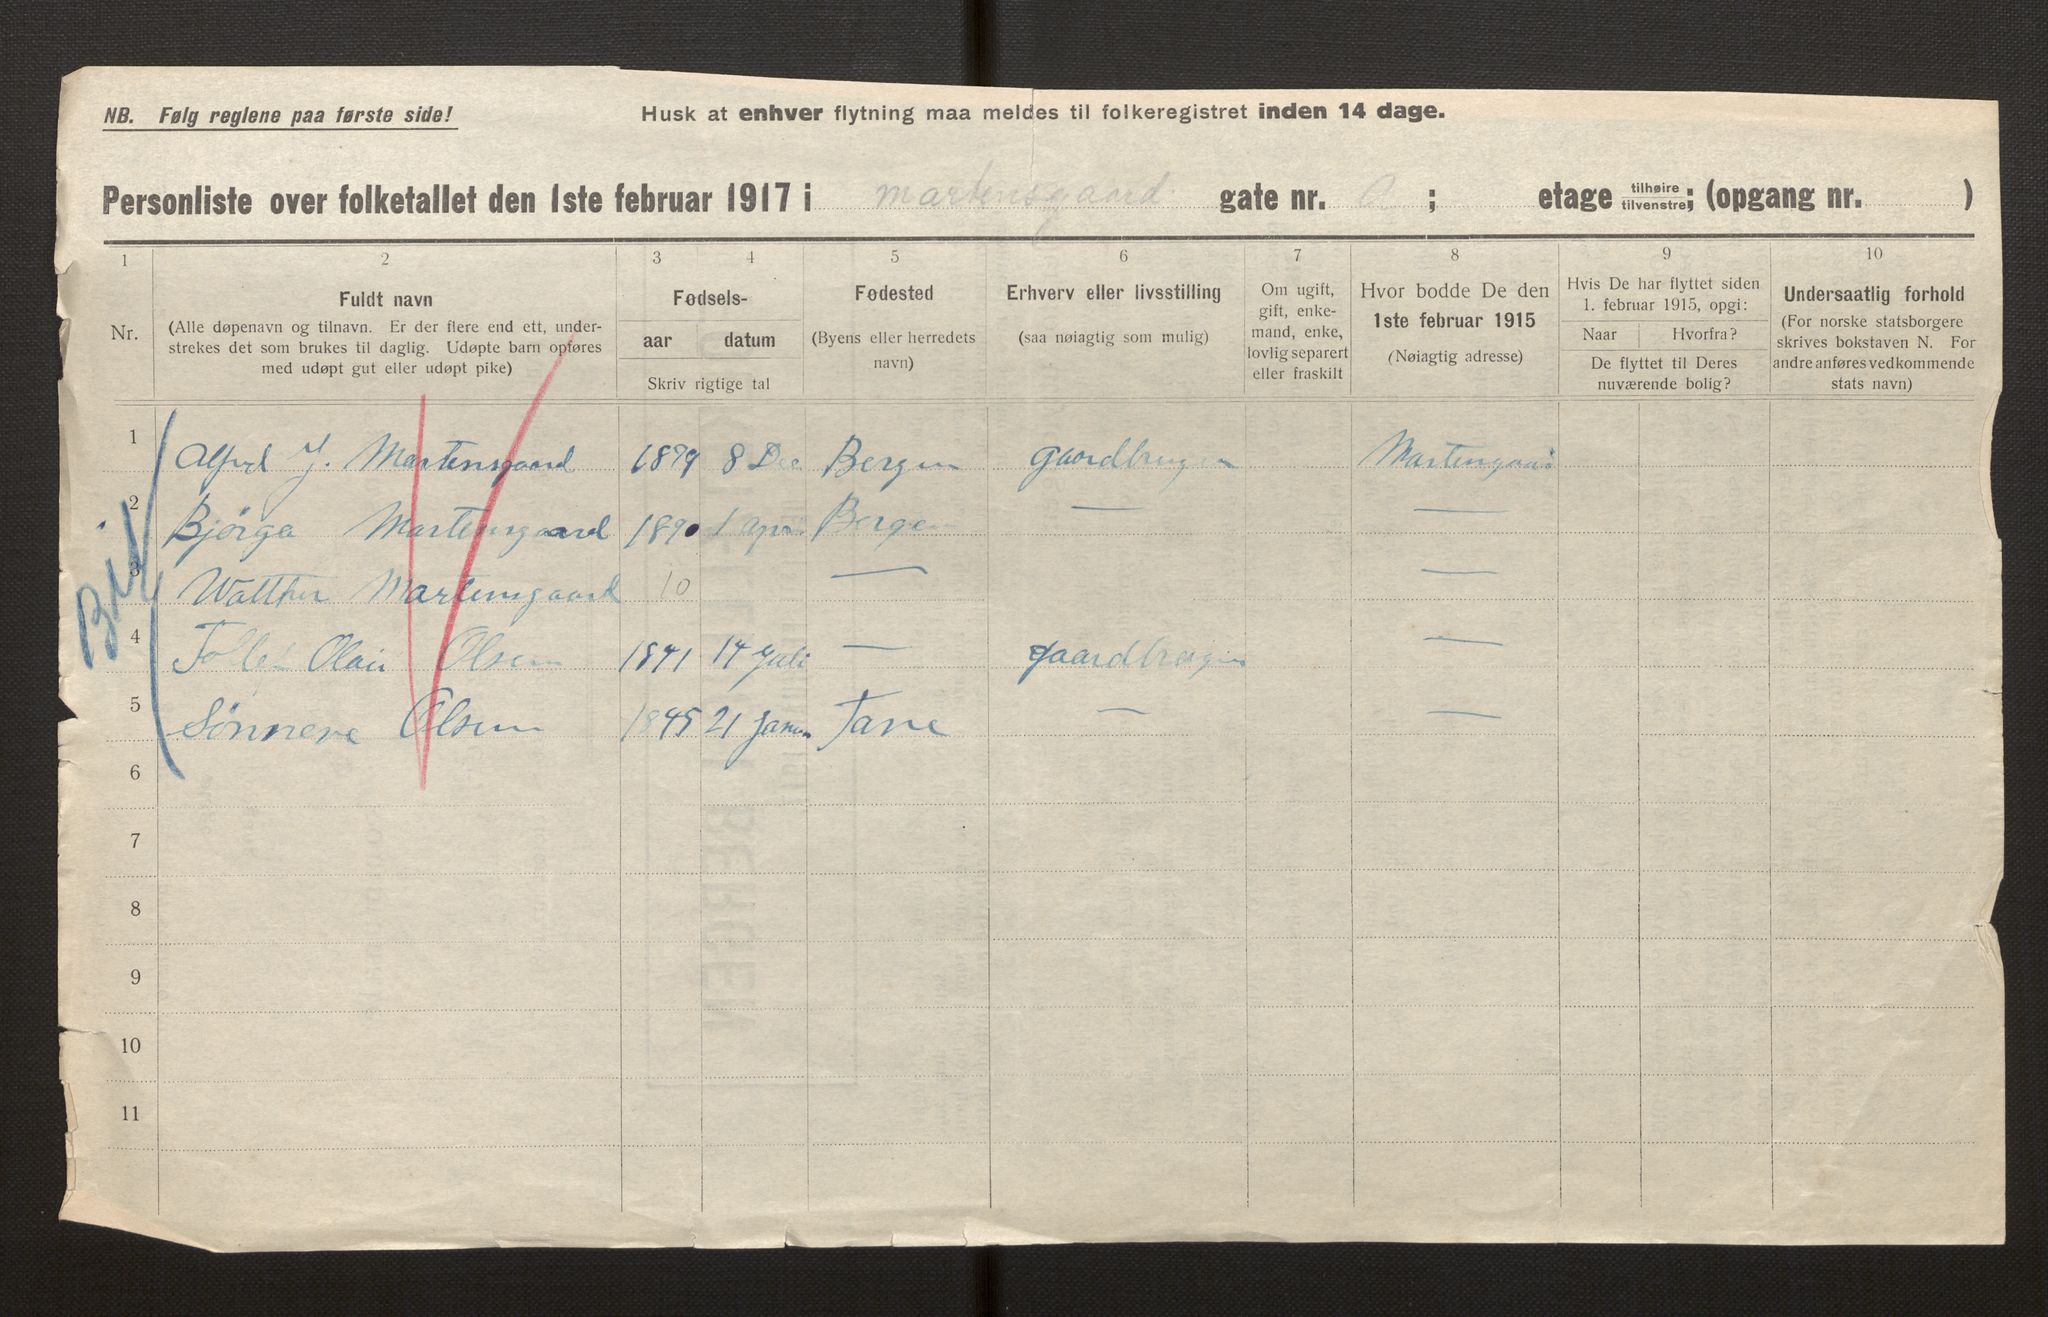 NB. Følg reglene paa første side!
Husk at enhver flytning maa meldes til folkeregistret inden 14 dage.
Personliste over folketallet den 1ste februar 1917 i Martensgaard gate nr. ; etage tilhøire tilvenstre; (opgang nr. )
1 2 3 4 5 6 7 8 9 10
Nr.
Fuldt navn
(Alle døpenavn og tilnavn. Er der flere end ett, under-
strekes det som brukes til daglig. Udøpte barn opføres
med udøpt gut eller udøpt pike)
Fødsels-
aar datum
Skriv rigtige tal
Fødested
(Byens eller herredets
navn)
Erhverv eller livsstilling
(saa nøiagtig som mulig)
Om ugift,
gift, enke-
mand, enke,
lovlig separert
eller fraskilt
Hvor bodde De den
1ste februar 1915
(Nøiagtig adresse)
Hvis De har flyttet siden
1. februar 1915, opgi:
Naar Hvorfra?
De flyttet til Deres
nuværende bolig?
Undersaatlig forhold
(For norske statsborgere
skrives bokstaven N. For
andre anføres vedkommende
stats navn)
1 Alfred J. Martensgaard 1879 8 Dec Bergen gaardbruger Martensgaard
2 Bjørga Martensgaard 1890 1 Bergen — —
3 Walther Martensgaard 10 — —
4 Olai Olsen 1841 14 Juli — gaardbruger —
5 Sønneve Olsen 1845 21 Januar Fane — —
6
7
8
9
10
11